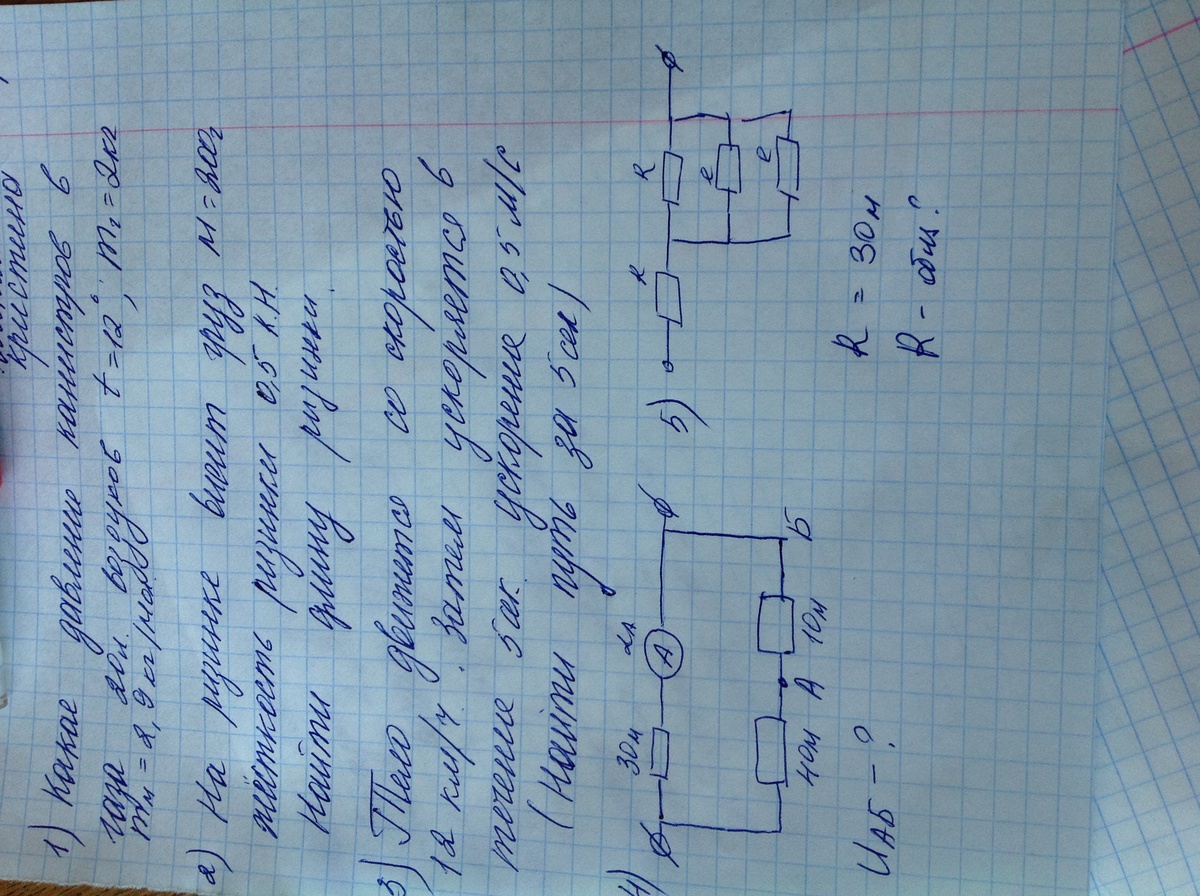 кристина
1) Какое давление канистров в
газа 20л. воздухов t = 12°, m₂ = 2кг
mм = 2,9 кг/мол
2) На ризинке висит груз м = 200г
жёсткость ризинки 0,5 к.Н.
Найти длину ризинки.
3) Тело движется со скоростью
12 км/ч. Затем ускоряется в
течение 5 сек. ускорение 0,5 м/с
(Найти путь за 5 сек)
4)
3Ом
А
2А
4Ом
А
1Ом
Б
UАБ - ?
5)
R
R
R
R
R = 3Ом
R - общ?